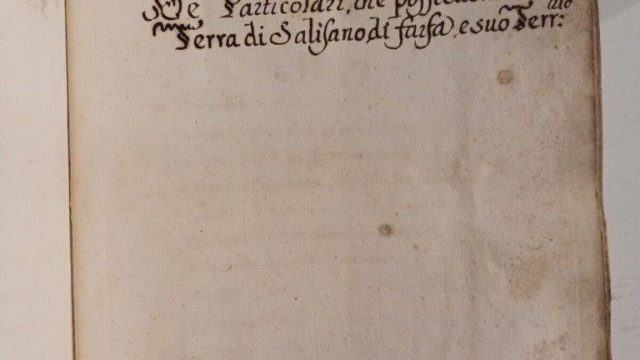 De Particolari, che
Terra di Salisano, di farfa, e suo Terr: